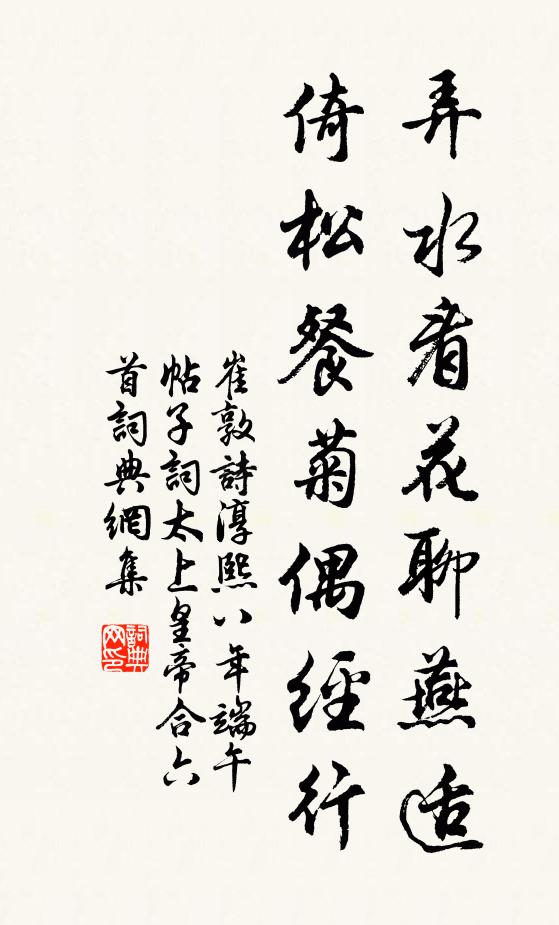 弄水看花聊燕适
倚松餐菊偶經行
崔敦詩淳熙八年端午
帖子詞太上皇帝合六
首詞典網集
詞典网印